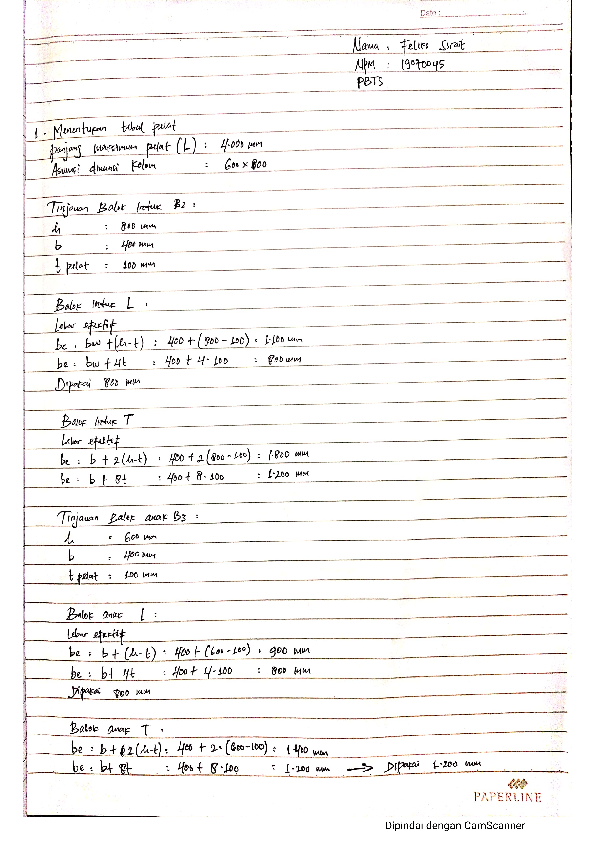 Date :
Nama : Felies Sirait
NPM : 19070045
PBTS
1. Menentukan tebal pelat
panjang maksimum pelat (L) : 4.000 mm
Asumsi dimensi kolom : 600 x 800
Tinjauan Balok Induk B2 :
h : 800 mm
b : 400 mm
t pelat : 100 mm
Balok Induk L :
Lebar efektif
be : bw + (h-t) : 400 + (800 - 100) : 1.100 mm
be : bw + 4t : 400 + 4 . 100 : 800 mm
Dipakai 800 mm
Balok Induk T
Lebar efektif
be : b + 2 (h-t) : 400 + 2 (800 - 100) : 1.800 mm
be : b + 8t : 400 + 8 . 100 : 1.200 mm
Tinjauan Balok anak B3 :
h : 600 mm
b : 400 mm
t pelat : 100 mm
Balok anak L :
Lebar efektif
be : b + (h-t) : 400 + (600 - 100) : 900 mm
be : b + 4t : 400 + 4 . 100 : 800 mm
Dipakai 800 mm
Balok anak T :
be : b + 2 (h-t) : 400 + 2 . (600-100) : 1.400 mm
be : b + 8t : 400 + 8 . 100 : 1.200 mm → Dipakai 1.200 mm
PAPERLINE
Dipindai dengan CamScanner